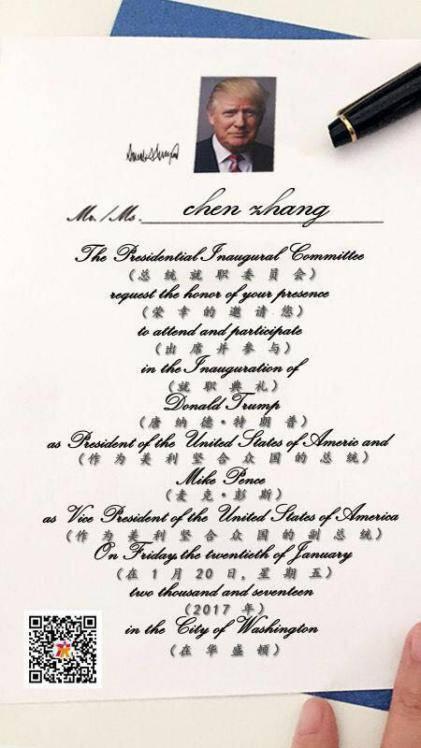 Mr. / Ms. chen zhang
The Presidential Inaugural Committee
(总统就职委员会)
request the honor of your presence
(荣幸的邀请您)
to attend and participate
(出席并参与)
in the Inauguration of
(就职典礼)
Donald Trump
(唐纳德·特朗普)
as President of the United States of Americ and
(作为美利坚合众国的总统)
Mike Pence
(麦克·彭斯)
as Vice President of the United States of America
(作为美利坚合众国的副总统)
On Friday, the twentieth of January
(在1月20日, 星期五)
two thousand and seventeen
(2017 年)
in the City of Washington
(在华盛顿)